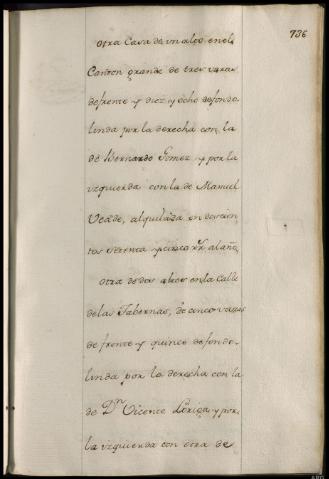 736
otra Casa de un alto en el
Canton grande de tres varas
de frente y diez y ocho de fondo
linda por la derecha con la
de Bernardo Gomez y por la
yzquierda con la de Manuel
alquilada en doscien
tos setenta y cinco rr.s al año,
otra de dos altos en la Calle
de las Tabernas, de cinco varas
de frente y quince de fondo
linda por la derecha con la
de Dn. Vicente y por
la yzquierda con otra de